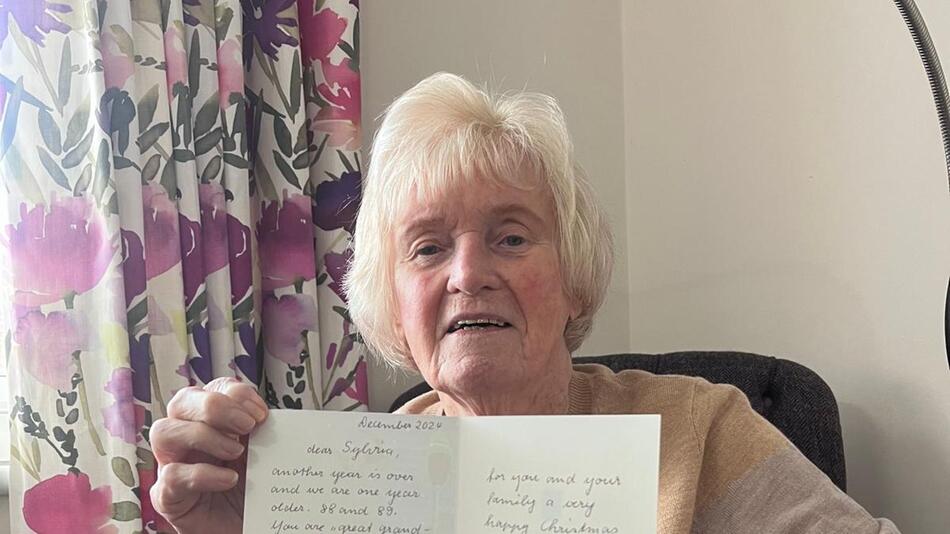 December 2024
dear Sylvia,
another year is over
and we are one year
older. 88 and 89.
You are „great grand-
for you and your
family a very
happy Christmas